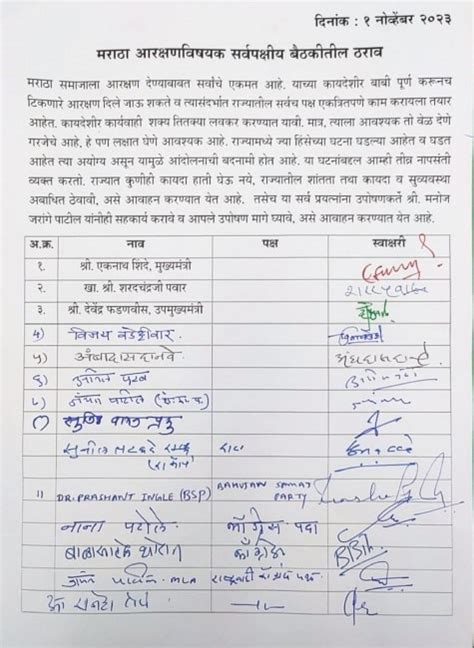 दिनांक : १ नोव्हेंबर २०२३
मराठा आरक्षणविषयक सर्वपक्षीय बैठकीतील ठराव
मराठा समाजाला आरक्षण देण्याबाबत सर्वांचे एकमत आहे. याच्या कायदेशीर बाबी पूर्ण करूनच
टिकणारे आरक्षण दिले जाऊ शकते व त्यासंदर्भात राज्यातील सर्वच पक्ष एकत्रितपणे काम करायला तयार
आहेत. कायदेशीर कार्यवाही शक्य तितक्या लवकर करण्यात यावी. मात्र, त्याला आवश्यक तो वेळ देणे
गरजेचे आहे, हे पण लक्षात घेणे आवश्यक आहे. राज्यामध्ये ज्या हिंसेच्या घटना घडल्या आहेत व घडत
आहेत त्या अयोग्य असून यामुळे आंदोलनाची बदनामी होत आहे. या घटनांबद्दल आम्ही तीव्र नापसंती
व्यक्त करतो. राज्यात कुणीही कायदा हाती घेऊ नये, राज्यातील शांतता तथा कायदा व सुव्यवस्था
अबाधित ठेवावी, असे आवाहन करण्यात येत आहे. तसेच या सर्व प्रयत्नांना उपोषणकर्ते श्री. मनोज
जरांगे पाटील यांनीही सहकार्य करावे व आपले उपोषण मागे घ्यावे, असे आवाहन करण्यात येत आहे.
अ.क्र. नाव पक्ष स्वाक्षरी
१. श्री. एकनाथ शिंदे, मुख्यमंत्री
२. खा. श्री. शरदचंद्रजी पवार
३. श्री. देवेंद्र फडणवीस, उपमुख्यमंत्री
४) विजय वडेट्टीवार
५) अंबादास दानवे
६) अनिल परब
11) DR. PRASHANT INGLE (BSP) BAHUJAN SAMAJ PARTY
नाना पटोले काँग्रेस पक्ष
बाळासाहेब थोरात काँग्रेस